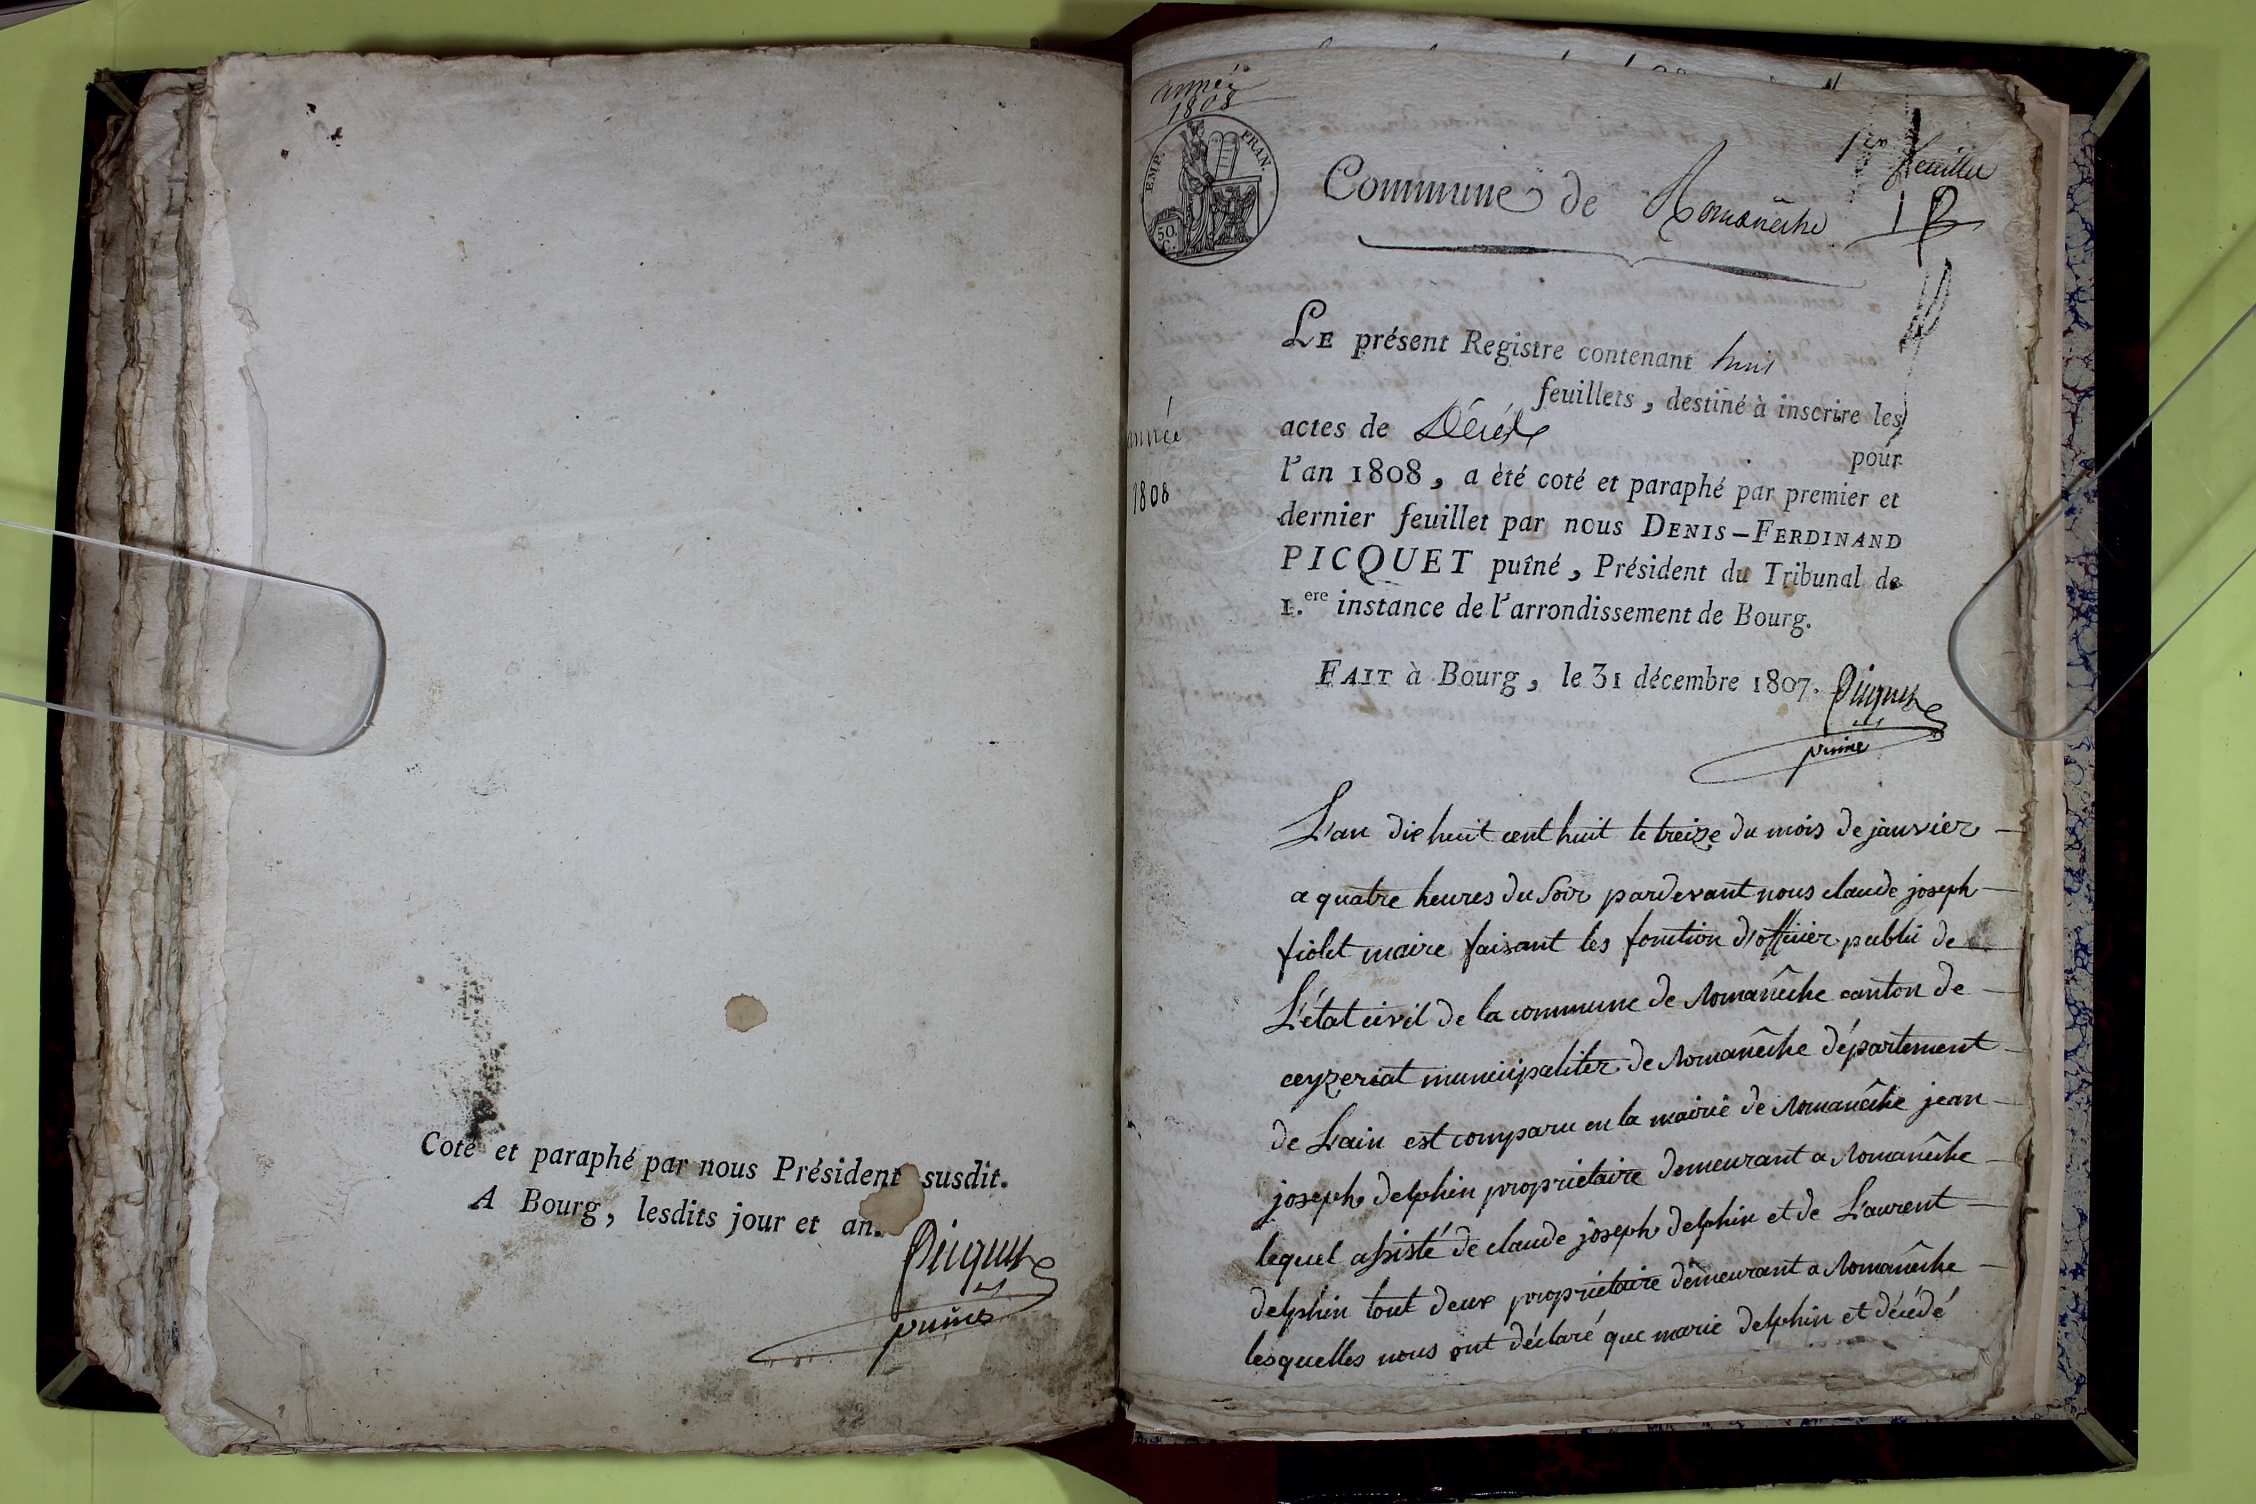 Coté et paraphé par nous Président susdit.
A Bourg, lesdits jour et an.
Picquet
puiné
année
1808
EMP. FRAN.
50.
C.
1er feuillet
Commune de Romanêche
1 P
LE présent Registre contenant huit
feuillets, destiné à inscrire les
actes de Décés
pour
l'an 1808, a èté coté et paraphé par premier et
dernier feuillet par nous DENIS-FERDINAND
PICQUET puîné, Président du Tribunal de
1.ere instance de l'arrondissement de Bourg.
FAIT à Bourg, le 31 décembre 1807.
Picquet
puiné
année
1808
L'an dix huit cent huit le treize du mois de janvier
a quatre heures du soir pardevant nous claude joseph
fiolet maire faisant les fonction d'officier public de
L'état civil de la commune de Romanêche canton de
ceyzeriat municipaliter de Romanêche département
de L'ain est comparu en la mairie de Romanêche jean
joseph delphin proprietaire demeurant a Romanêche
lequel assisté de claude joseph delphin et de Laurent
delphin tout deux proprietaire demeurant a Romanêche
lesquelles nous ont déclaré que marie delphin et décédé